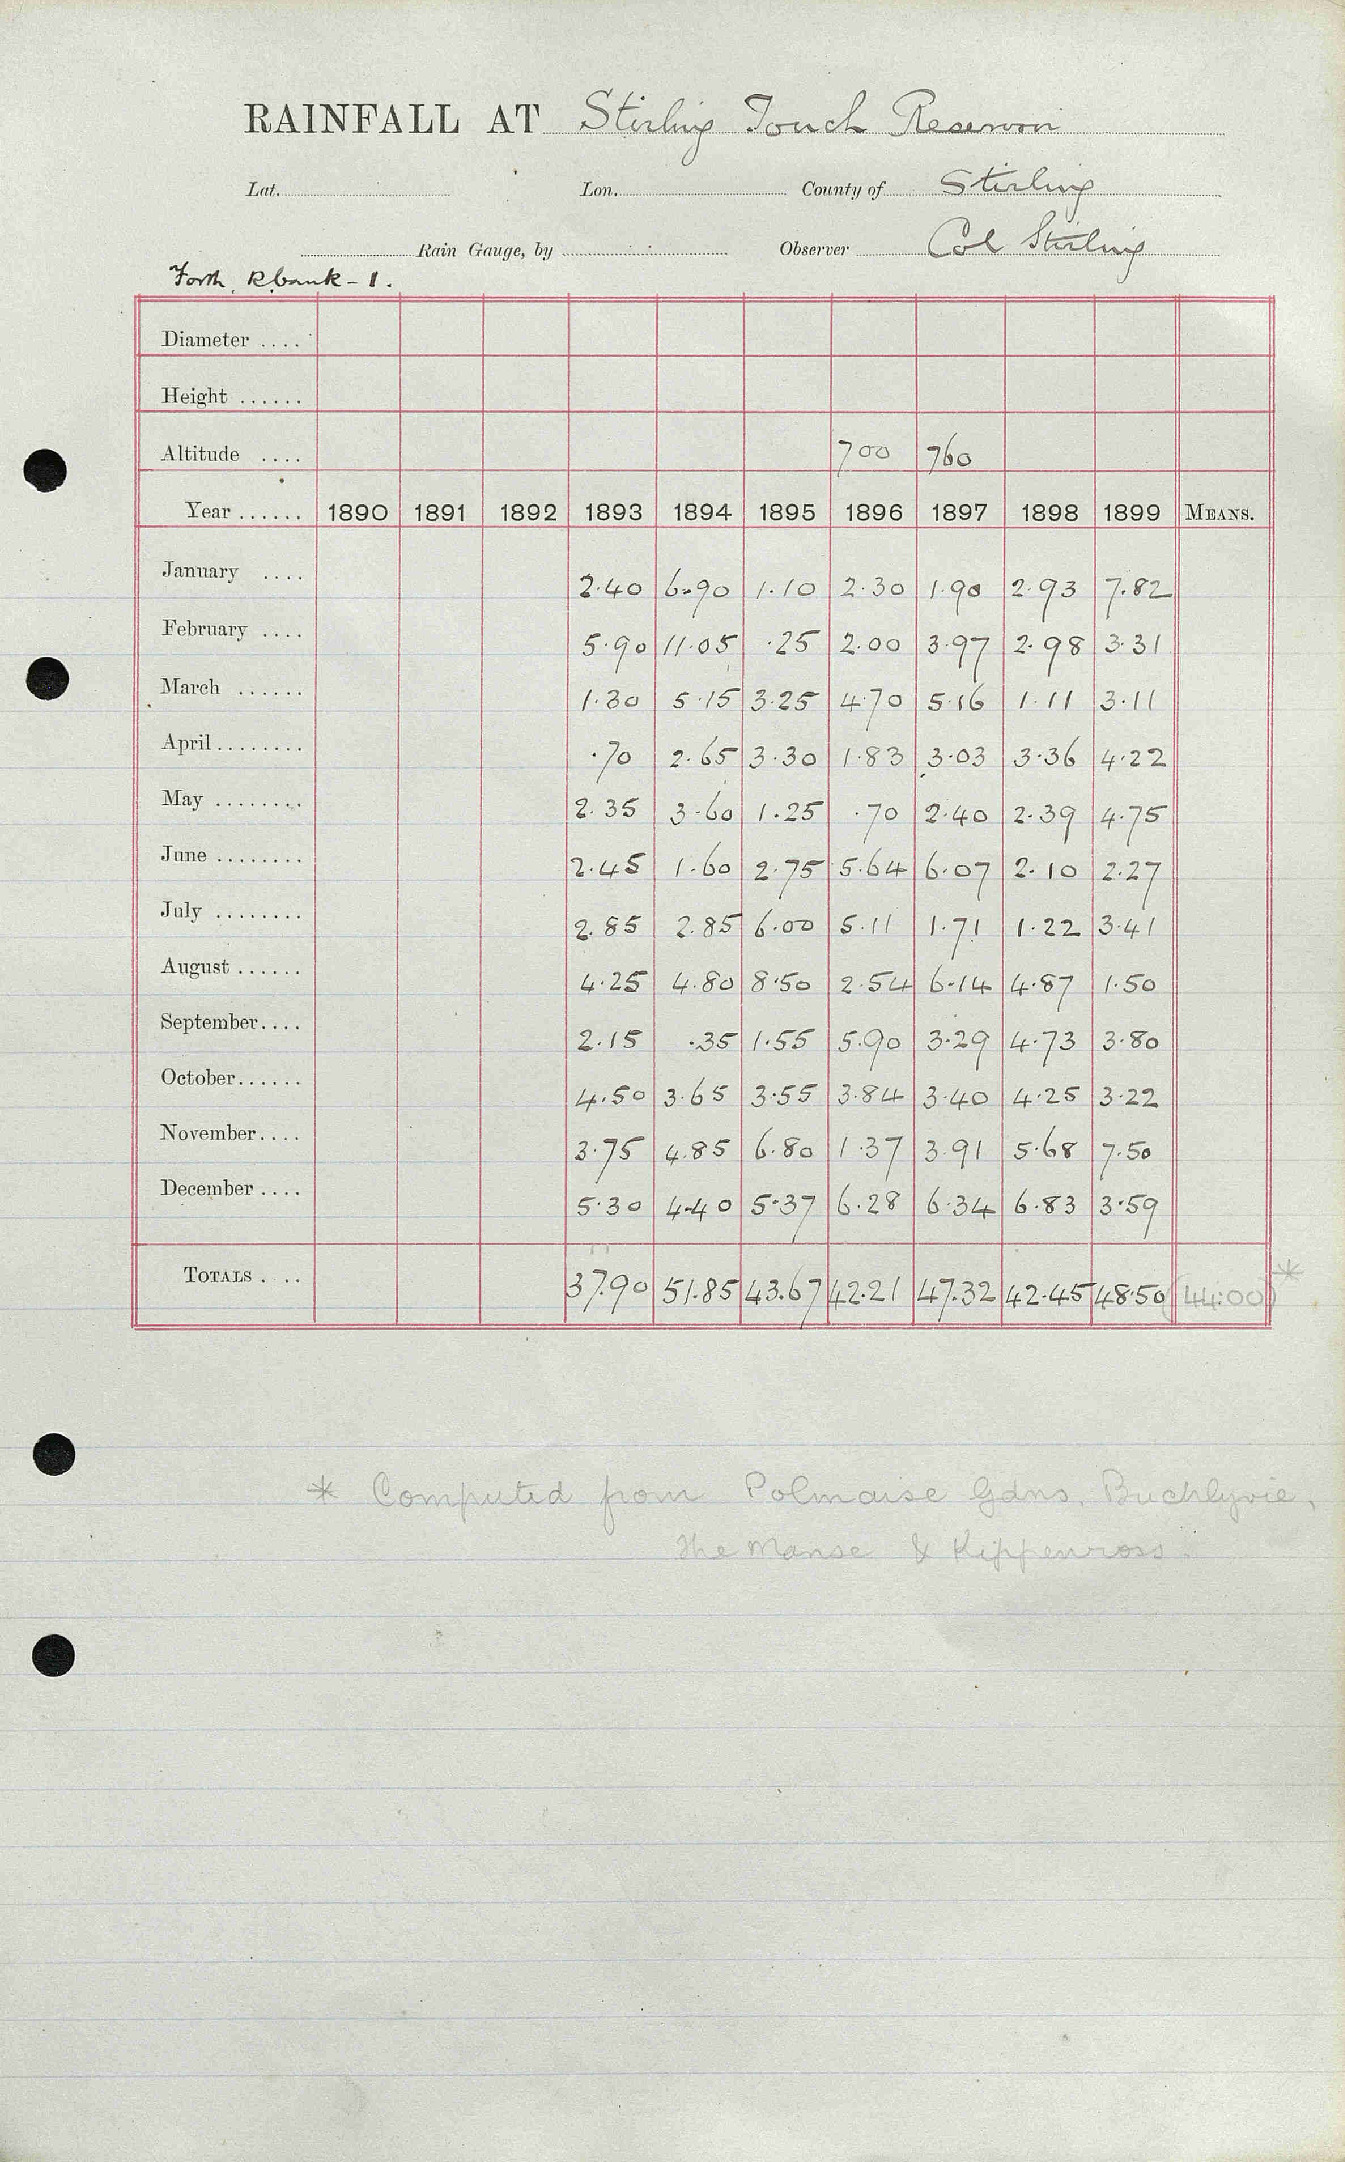 RAINFALL AT Stirling Touch Reservoir
Lat. Lon. County of Stirling
Rain Gauge, by Observer Col Stirling
Forth. R bank - 1.
Diameter ....
Height ......
Altitude .... 700 760
Year ...... 1890 1891 1892 1893 1894 1895 1896 1897 1898 1899 MEANS.
January .... 2.40 6.90 1.10 2.30 1.90 2.93 7.82
February .... 5.90 11.05 .25 2.00 3.97 2.98 3.31
March ...... 1.30 5.15 3.25 4.70 5.16 1.11 3.11
April ........ .70 2.65 3.30 1.83 3.03 3.36 4.22
May ........ 2.35 3.60 1.25 .70 2.40 2.39 4.75
June ........ 2.45 1.60 2.75 5.64 6.07 2.10 2.27
July ........ 2.85 2.85 6.00 5.11 1.71 1.22 3.41
August ...... 4.25 4.80 8.50 2.54 6.14 4.87 1.50
September .... 2.15 .35 1.55 5.90 3.29 4.73 3.80
October ...... 4.50 3.65 3.55 3.84 3.40 4.25 3.22
November .... 3.75 4.85 6.80 1.37 3.91 5.68 7.50
December .... 5.30 4.40 5.37 6.28 6.34 6.83 3.59
TOTALS .... 37.90 51.85 43.67 42.21 47.32 42.45 48.50 (44.00) *
* Computed from Polmaise Gdns, Buchlyvie,
The Manse & Kippenross.